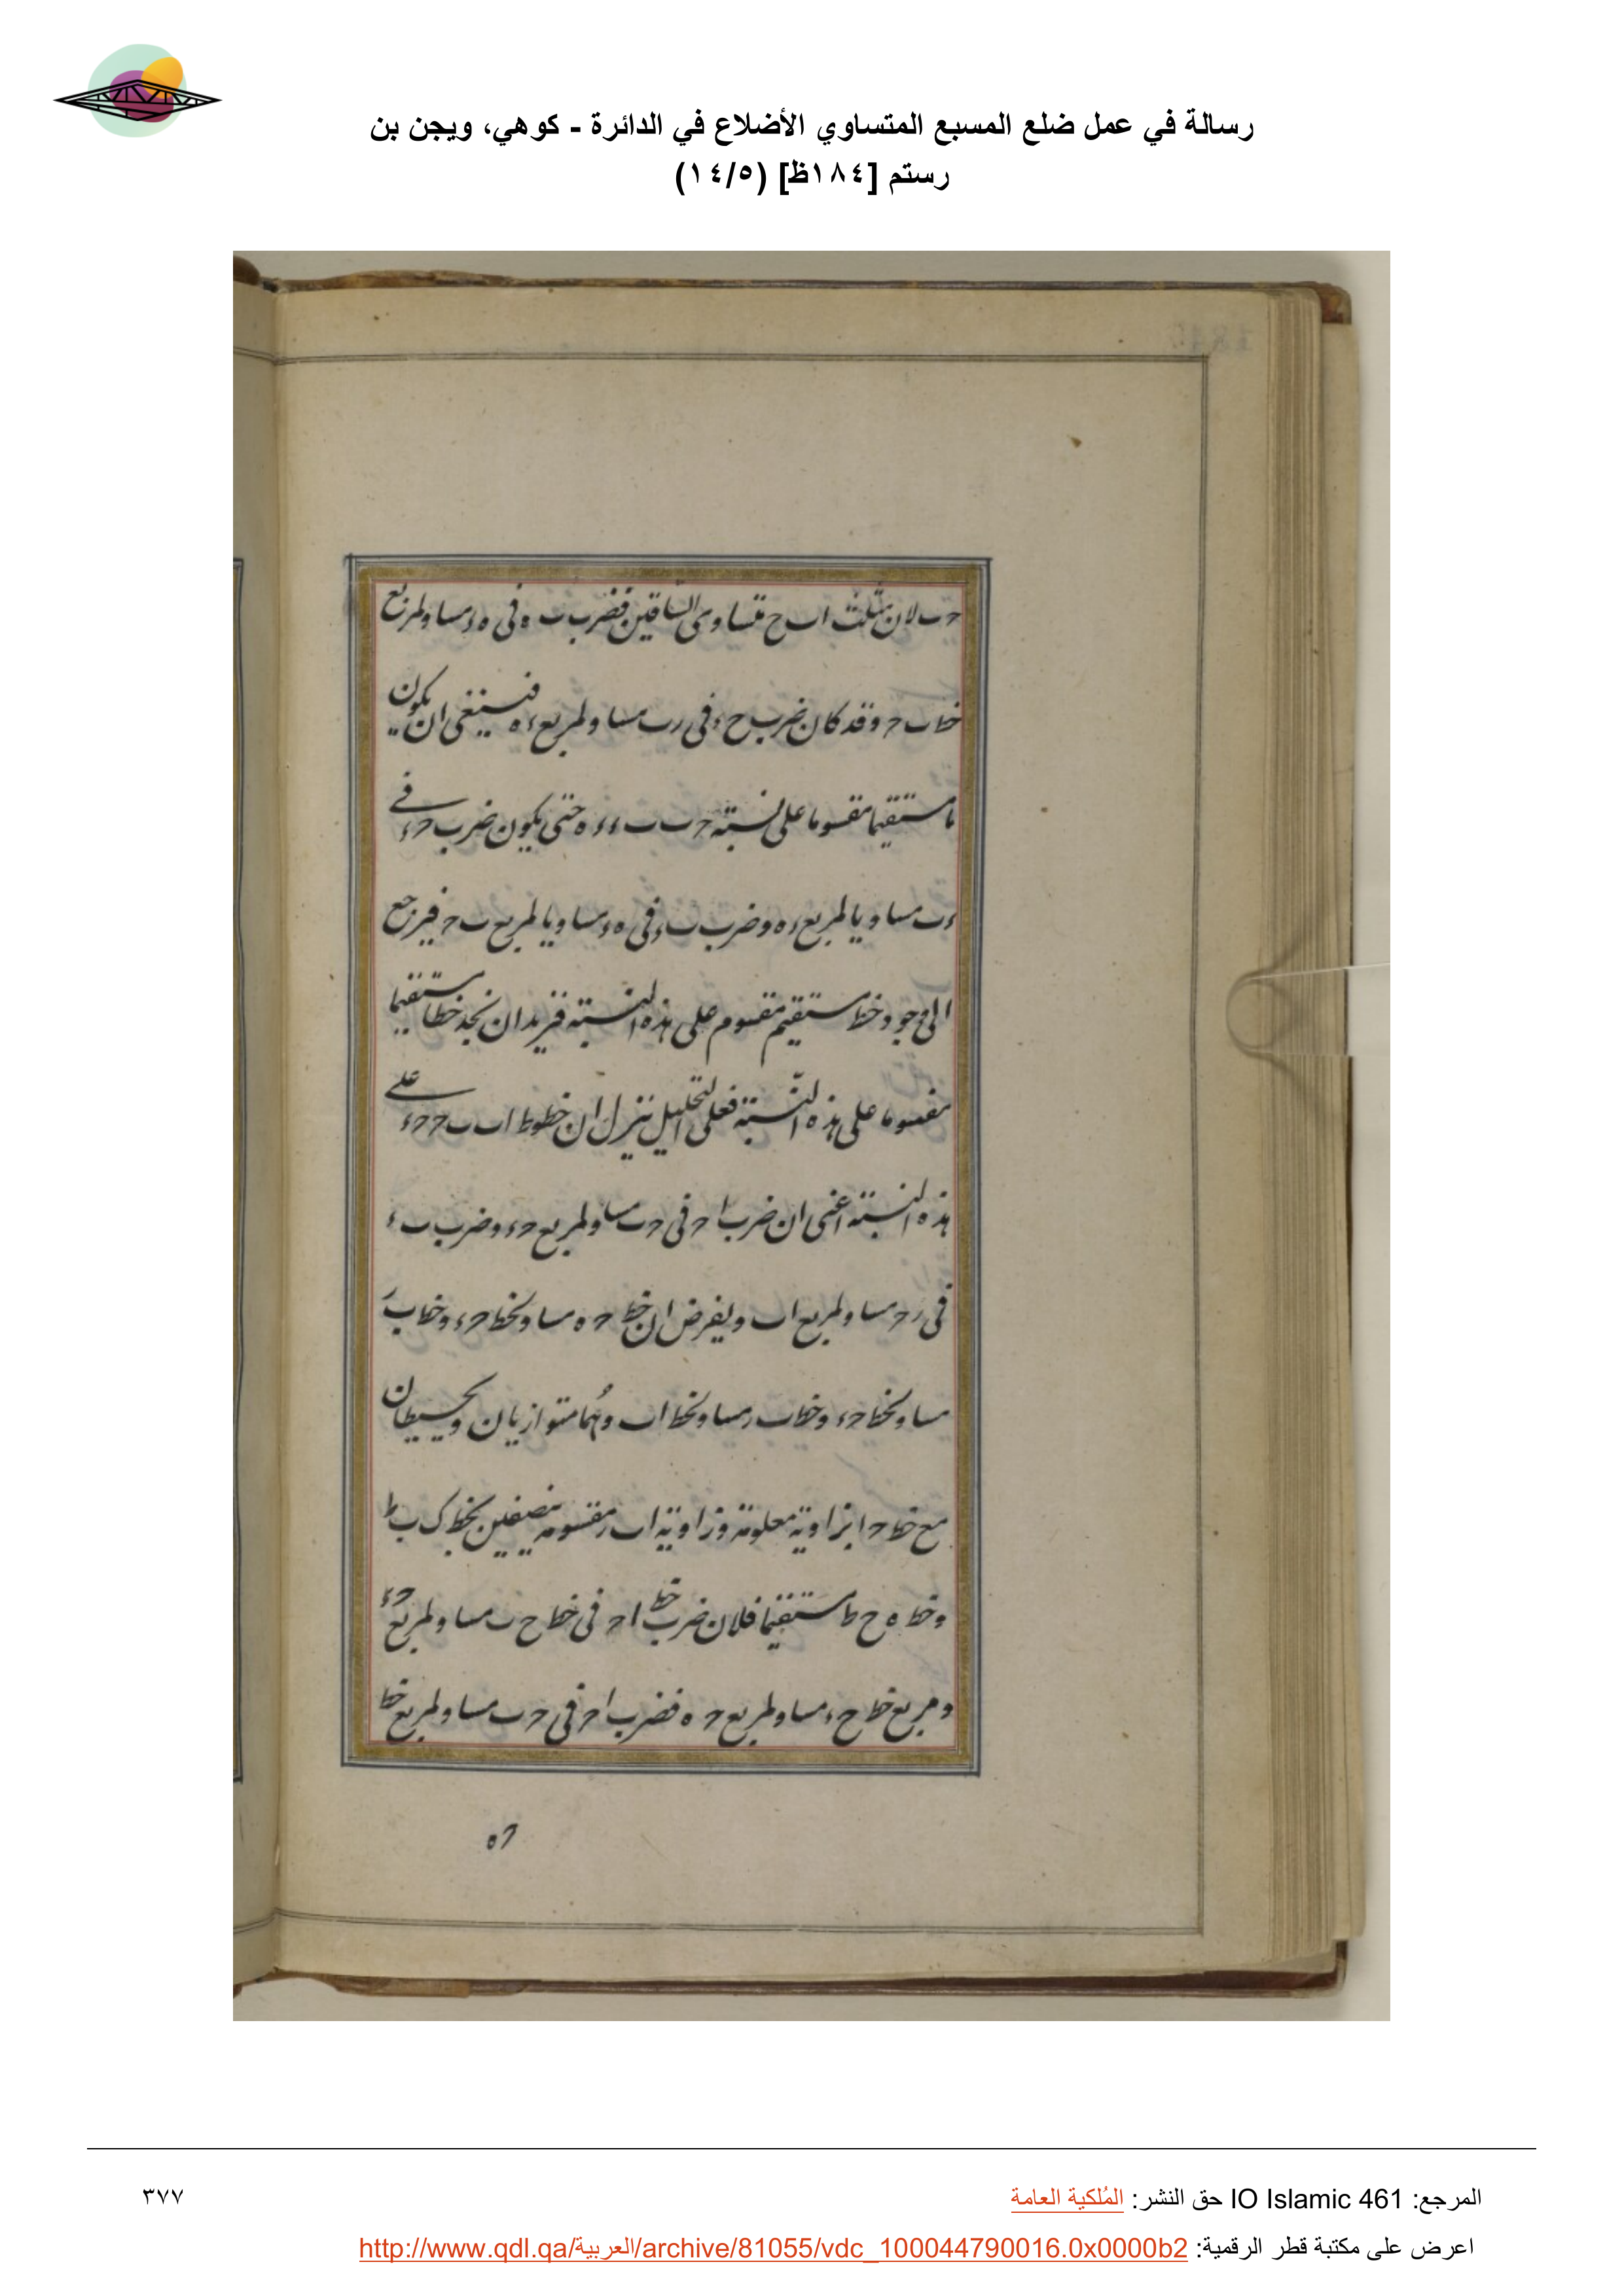 رسالة في عمل ضلع المسبع المتساوي الأضلاع في الدائرة - كوهي، ويجن بن
رستم [١٨٤ظ] (١٤/٥)
حب لان مثلث اب ح متساوى الساقين فضرب ب ه فى ه ء مساو لمربع
خط ب ح وقد كان ضرب ح ء فى ء ب مساو لمربع ء ه فينبغى ان يكون
مستقيما مقسوما على نسبة ح ب ب ء ء ه حتى يكون ضرب ح ء فى
ء ب مساويا لمربع ء ه وضرب ب ء فى ه ء مساويا لمربع ب ح فيرجع
الى وجود خط مستقيم مقسوم على هذه النسبة فنريد ان نجد خطا مستقيما
مقسوما على هذه النسبة فعلى التحليل ننزل ان خطوط اب ب ح ح ء على
هذه النسبة اعنى ان ضرب ا ح فى ح ب مساو لمربع ح ء وضرب ب ء
فى ء ح مساو لمربع اب ويفرض ان خط ح ه مساو لخط ح ء وخط ب ر
مساو لخط ح ء وخط ب ر مساو لخط اب وهما متوازيان ويحيطان
مع خط ح ا بزاوية معلومة وزاوية اب ر مقسومة بنصفين بخط ك ب ط
وخط ه ح ط مستقيما فلان ضرب خط ا ح فى خط ح ب مساو لمربع ح ء
ومربع خط ح ء مساو لمربع ح ه فضرب ا ح فى ح ب مساو لمربع خط
ح ه
المرجع: IO Islamic 461 حق النشر: المُلكية العامة
٣٧٧
اعرض على مكتبة قطر الرقمية: http://www.qdl.qa/العربية/archive/81055/vdc_100044790016.0x0000b2